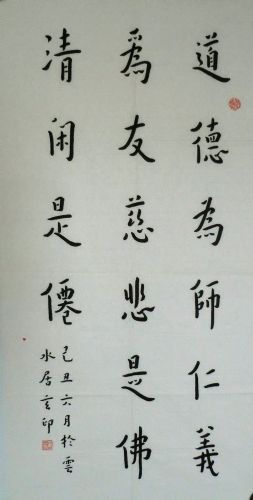 道德為師仁義
爲友慈悲是佛
清闲是僊
己丑六月於雲
水居玄印